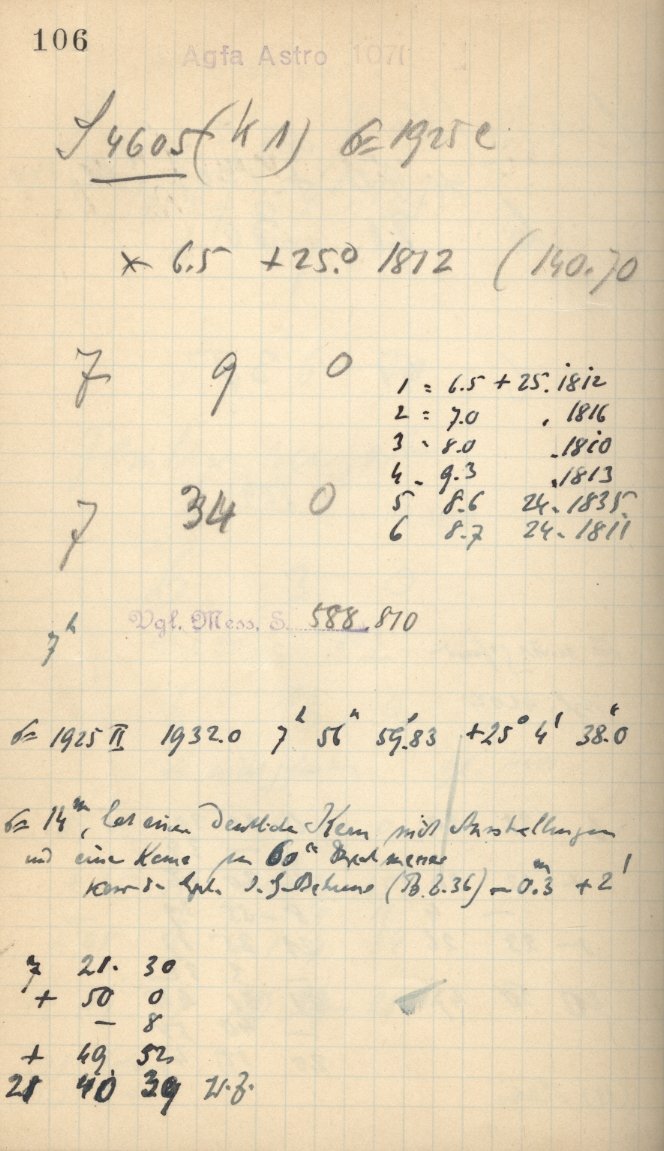 106
Agfa Astro 1071
S 4605 (K 1) σ = 1925 c
* 6.5 +25.° 1812 (140.70
7 9 0
1 = 6.5 + 25. 1812
2 = 7.0 . 1816
3 . 8.0 . 1810
4 . 9.3 . 1813
7 34 0
5 8.6 24. 1835
6 8.7 24. 1811
Vgl. Mess. S. 588.810
7h
σ = 1925 II 1932.0 7h 56m 59s.83 +25° 4' 38".0
σ = 14m, hat einen deutlichen Kern mit Ausstrahlungen
und eine Koma von 60" Durchmesser
(B.Z.36) - 0m.3 + 2'
7 21. 30
+ 50 0
- 8
+ 49 52
21 40 39 W.Z.